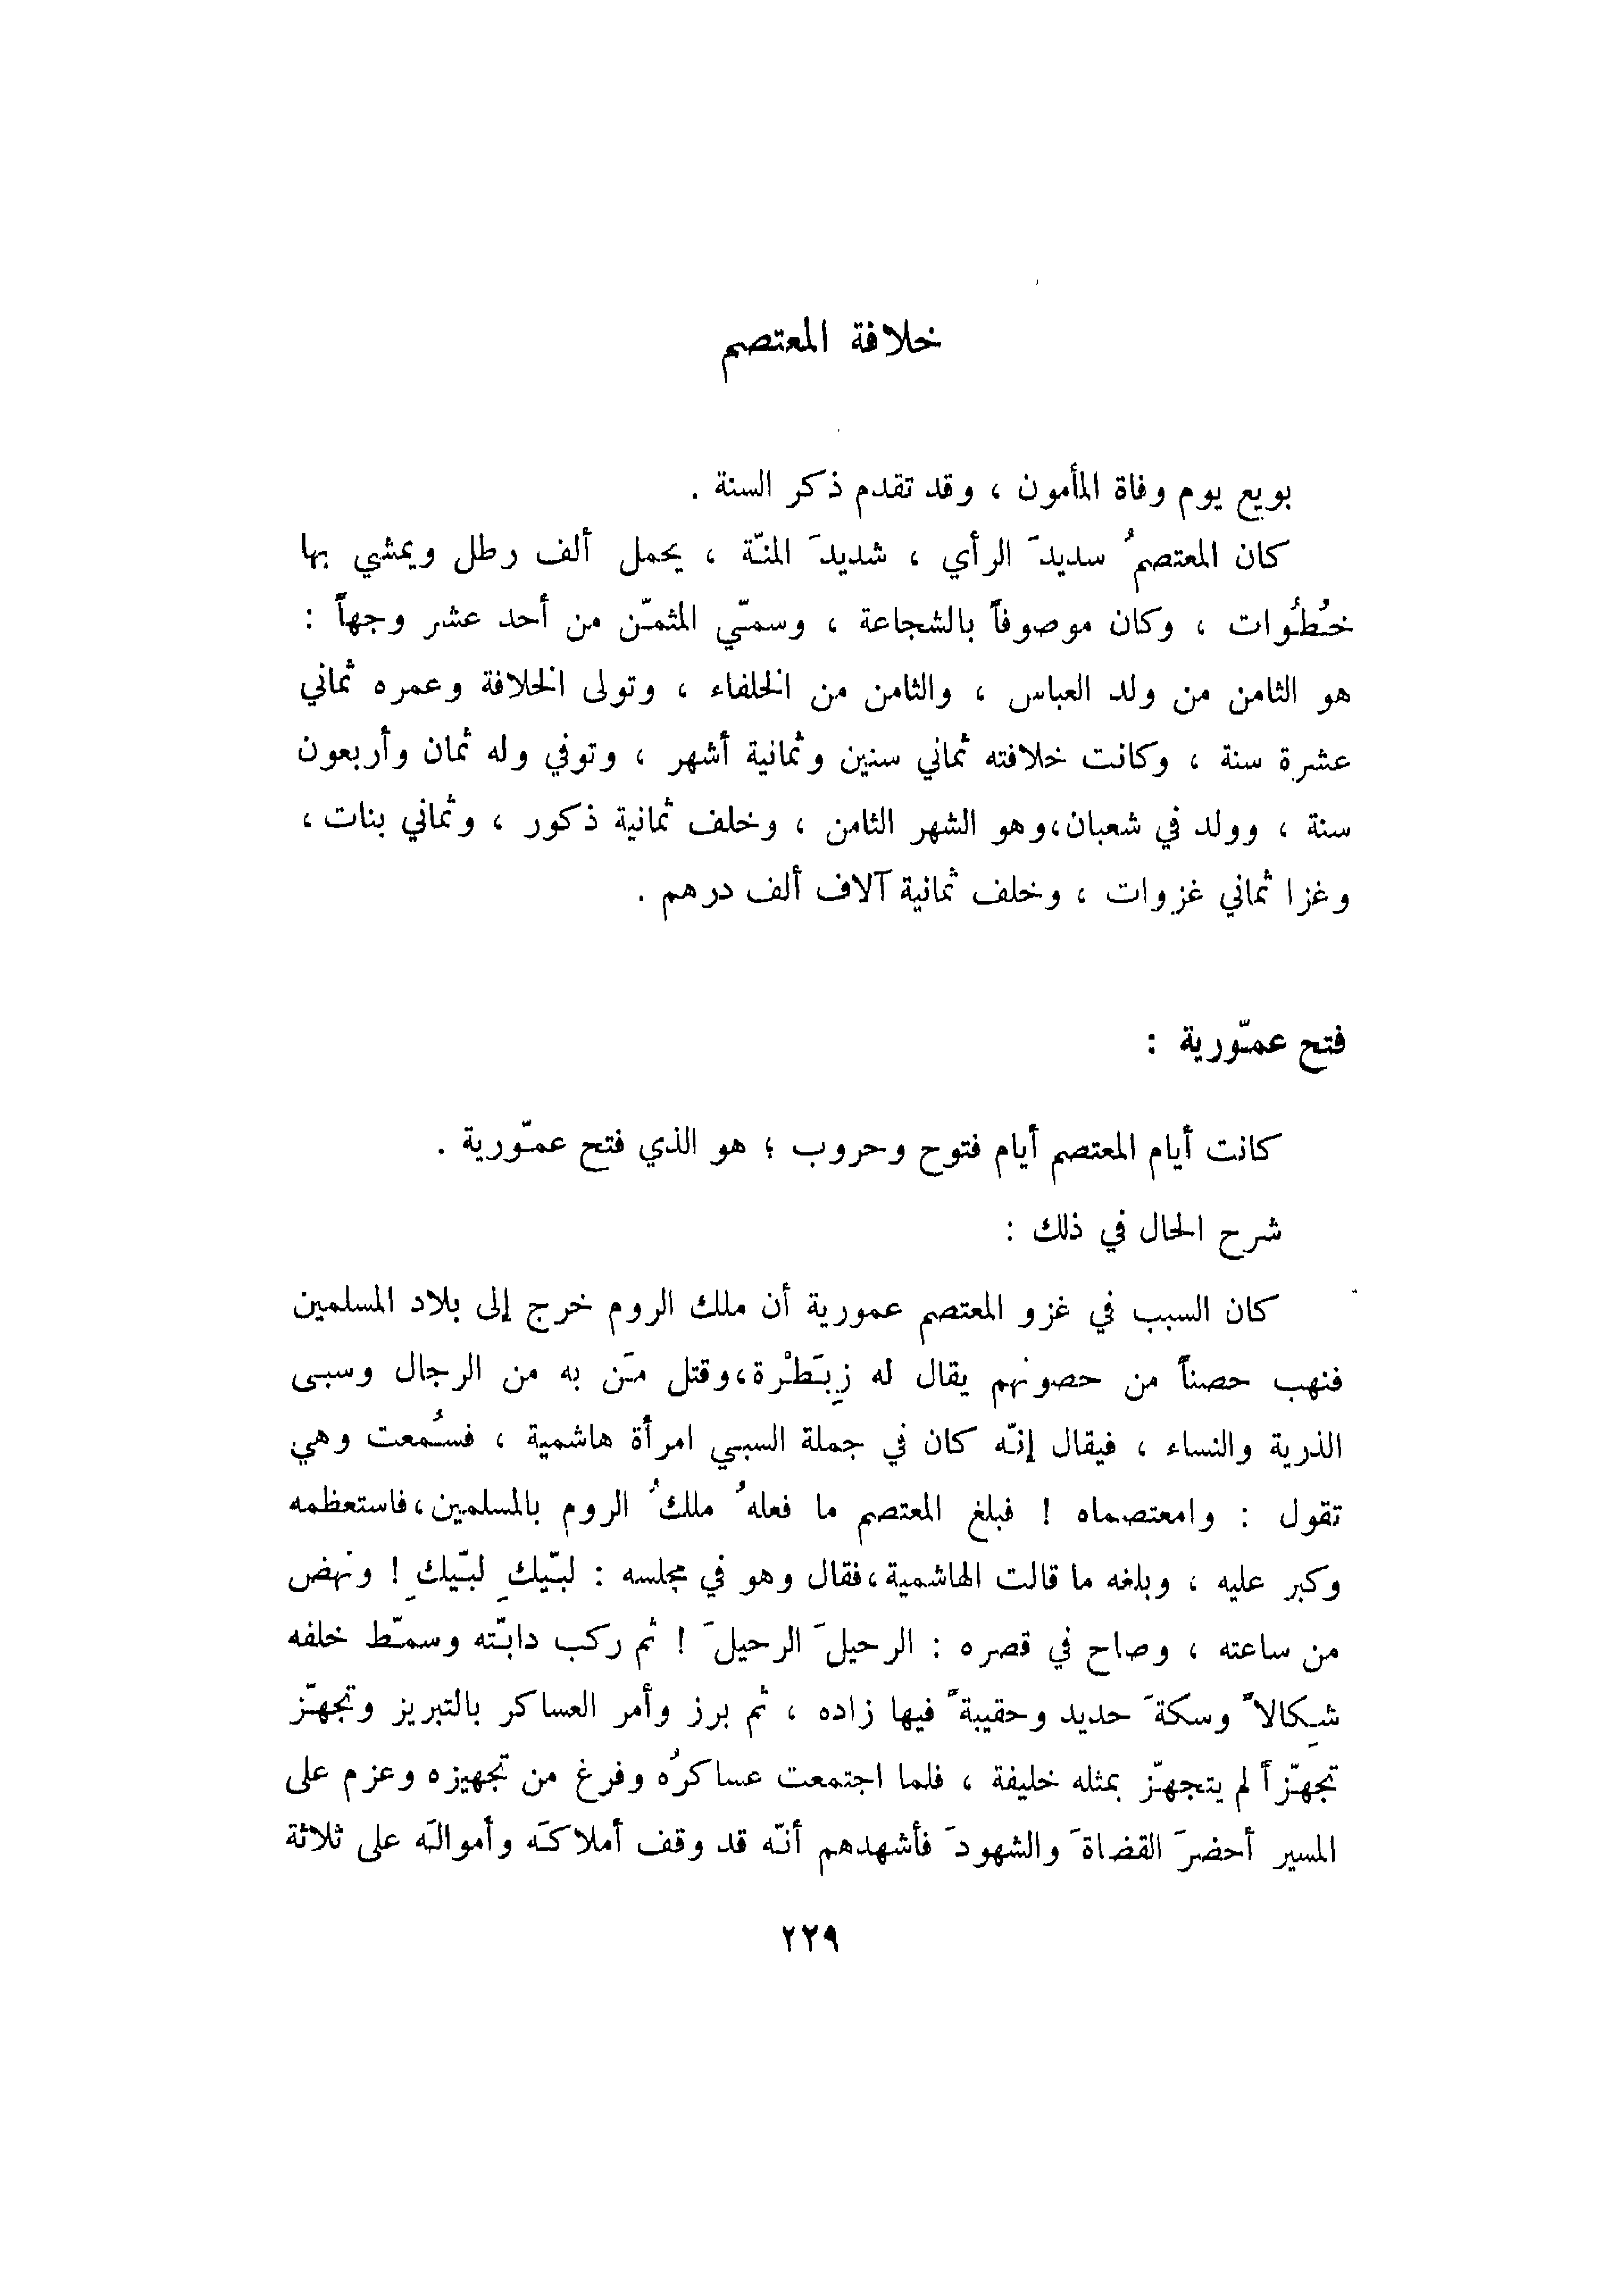 خلافة المعتصم
بويع يوم وفاة المأمون ، وقد تقدم ذكر السنة .
كان المعتصمُ سديدَ الرأي ، شديدَ المنّة ، يحمل ألف رطل ويمشي بها
خُطُوات ، وكان موصوفاً بالشجاعة ، وسمّي المثمّن من أحد عشر وجهاً :
هو الثامن من ولد العباس ، والثامن من الخلفاء ، وتولى الخلافة وعمره ثماني
عشرة سنة ، وكانت خلافته ثماني سنين وثمانية أشهر ، وتوفي وله ثمان وأربعون
سنة ، وولد في شعبان،وهو الشهر الثامن ، وخلف ثمانية ذكور ، وثماني بنات ،
وغزا ثماني غزوات ، وخلف ثمانية آلاف ألف درهم .
فتح عمّورية :
كانت أيام المعتصم أيام فتوح وحروب ؛ هو الذي فتح عمّورية .
شرح الحال في ذلك :
كان السبب في غزو المعتصم عمورية أن ملك الروم خرج إلى بلاد المسلمين
فنهب حصناً من حصونهم يقال له زِبَطْرة،وقتل مَن به من الرجال وسبى
الذرية والنساء ، فيقال إنّه كان في جملة السبي امرأة هاشمية ، فسُمعت وهي
تقول : وامعتصماه ! فبلغ المعتصم ما فعلهُ ملكُ الروم بالمسلمين،فاستعظمه
وكبر عليه ، وبلغه ما قالت الهاشمية،فقال وهو في مجلسه : لبّيكِ لبّيكِ ! ونهض
من ساعته ، وصاح في قصره : الرحيلَ الرحيلَ ! ثم ركب دابّته وسمّط خلفه
شِكالاً وسكةَ حديد وحقيبةً فيها زاده ، ثم برز وأمر العساكر بالتبريز وتجهّز
تجهّزاً لم يتجهّز بمثله خليفة ، فلما اجتمعت عساكرُه وفرغ من تجهيزه وعزم على
المسير أحضرَ القضاةَ والشهودَ فأشهدهم أنّه قد وقف أملاكَه وأموالَه على ثلاثة
٢٢٩